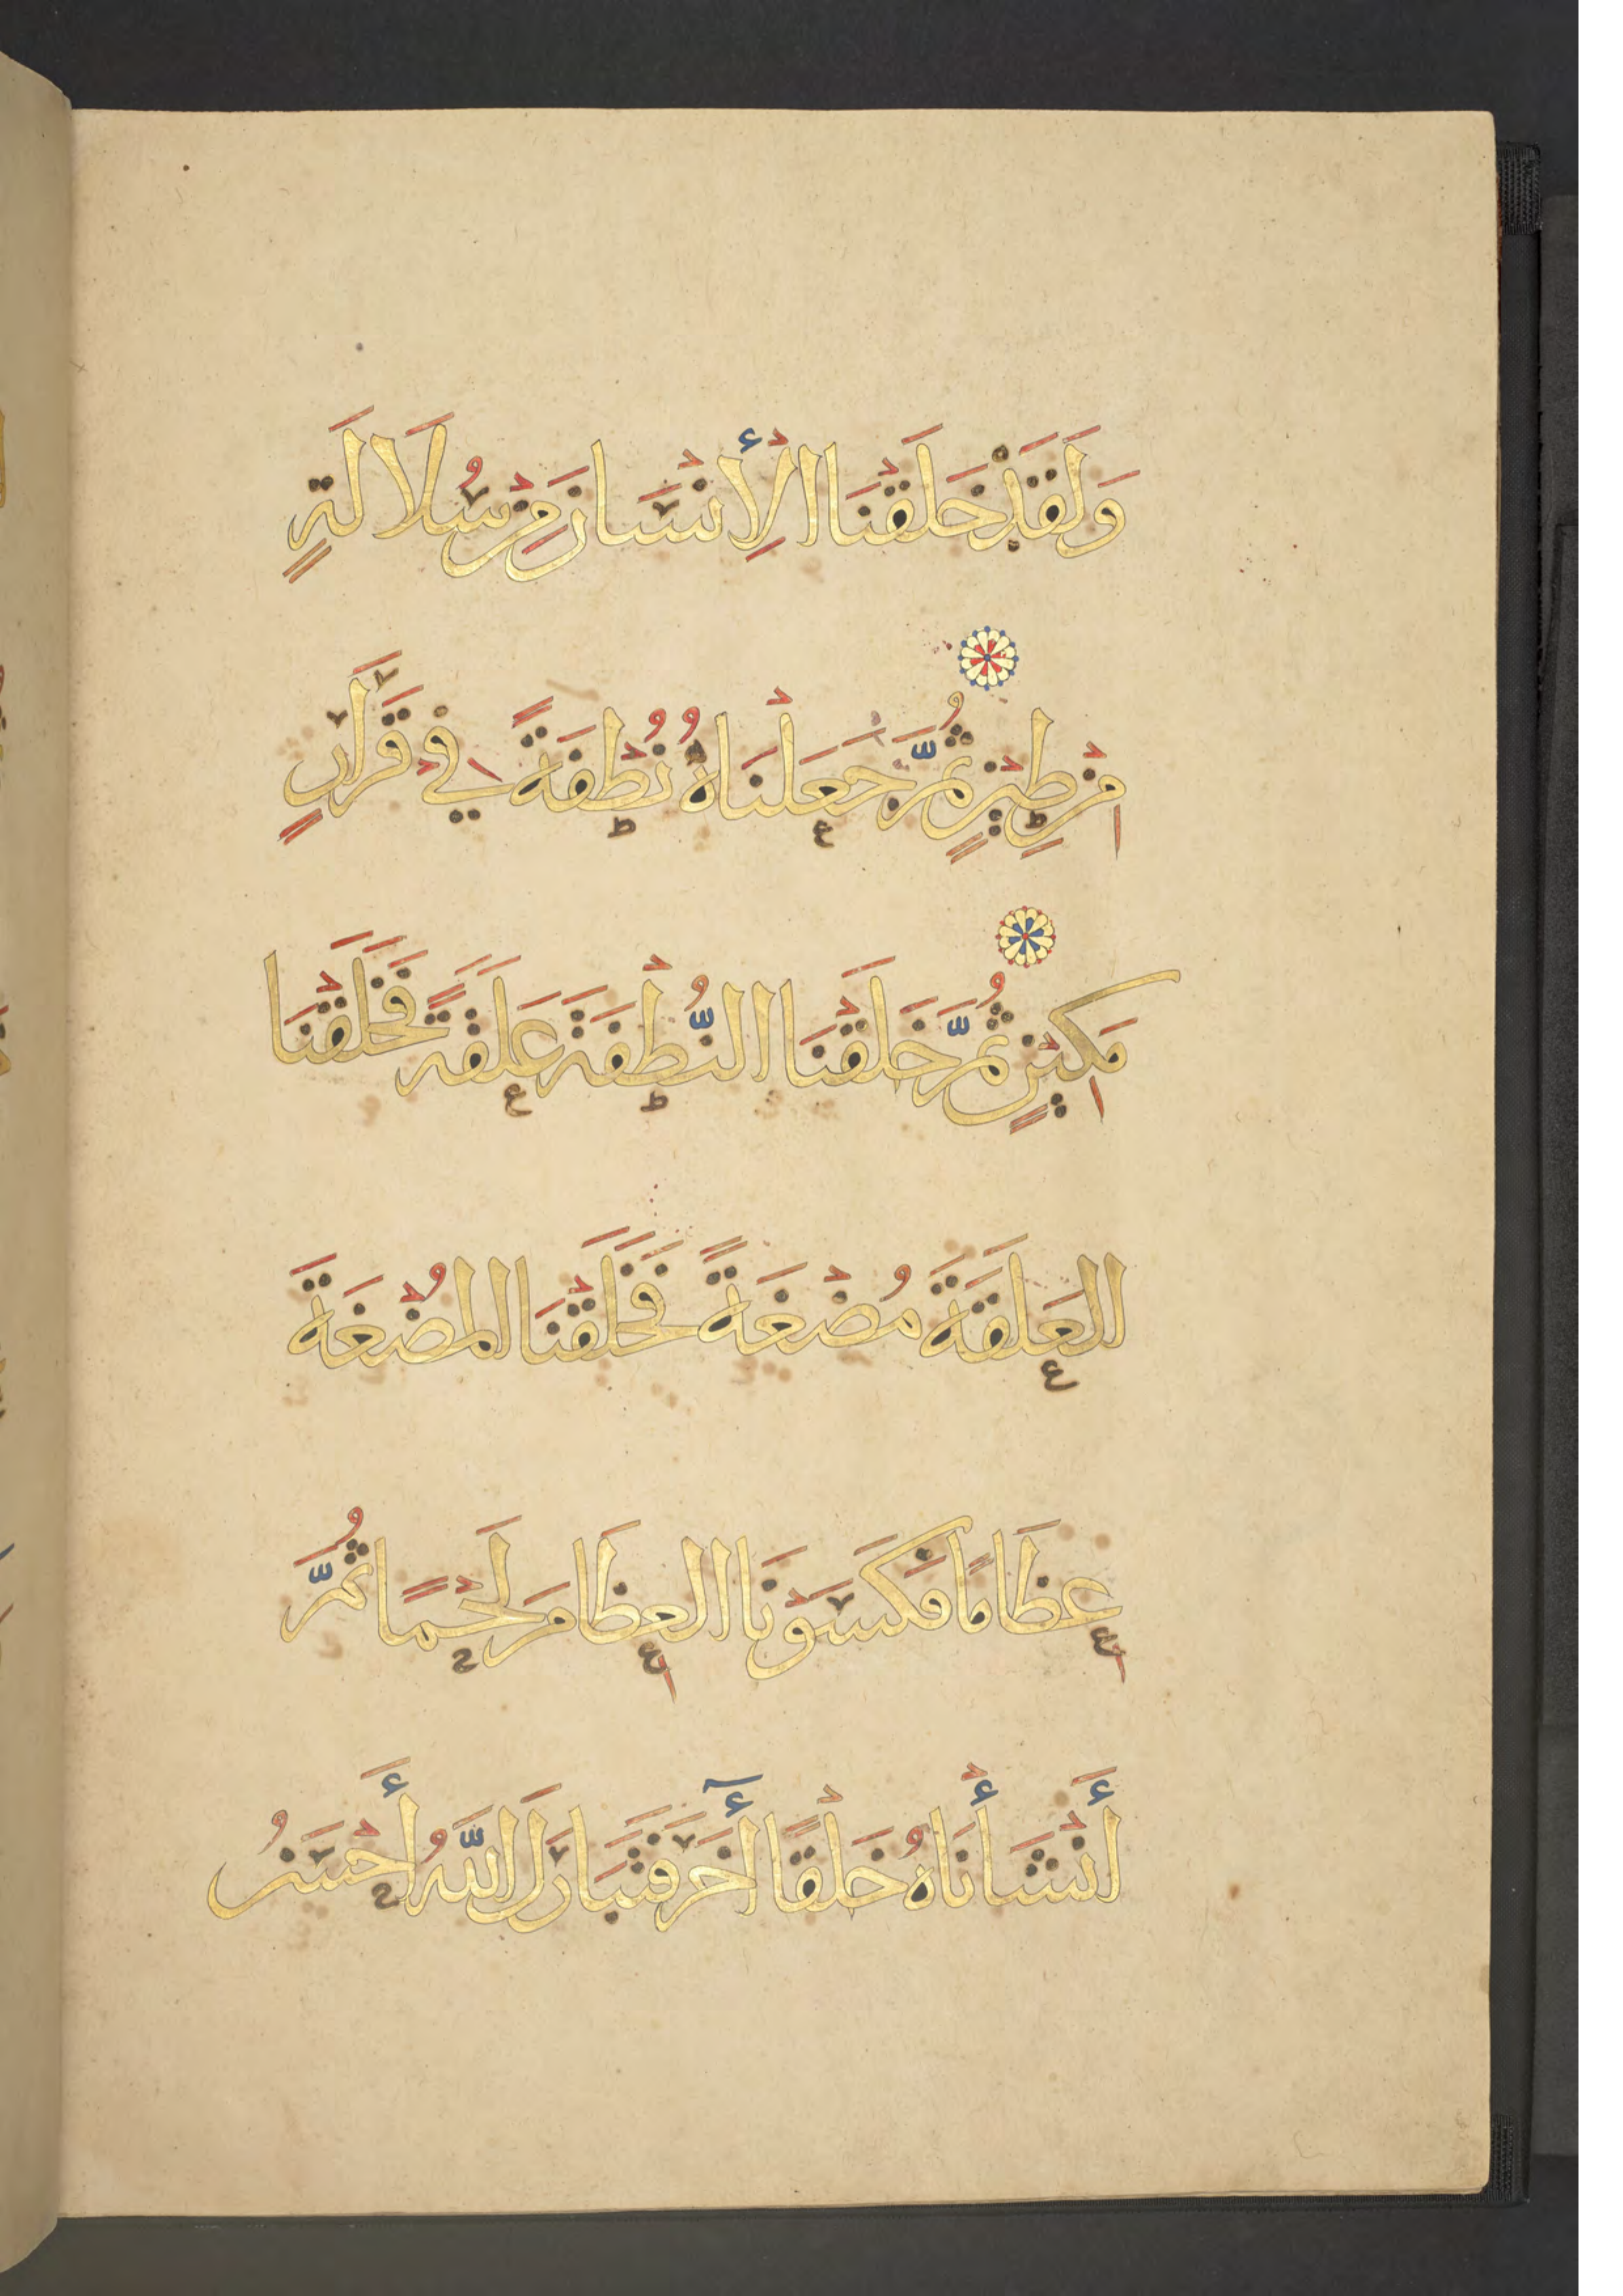 وَلَقَدْ خَلَقْنَا الْإِنْسَانَ مِنْ سُلَالَةٍ
مِنْ طِينٍ ثُمَّ جَعَلْنَاهُ نُطْفَةً فِي قَرَارٍ
مَكِينٍ ثُمَّ خَلَقْنَا النُّطْفَةَ عَلَقَةً فَخَلَقْنَا
الْعَلَقَةَ مُضْغَةً فَخَلَقْنَا الْمُضْغَةَ
عِظَامًا فَكَسَوْنَا الْعِظَامَ لَحْمًا ثُمَّ
أَنْشَأْنَاهُ خَلْقًا أٓخَرَ فَتَبَارَكَ اللَّهُ أَحْسَنُ